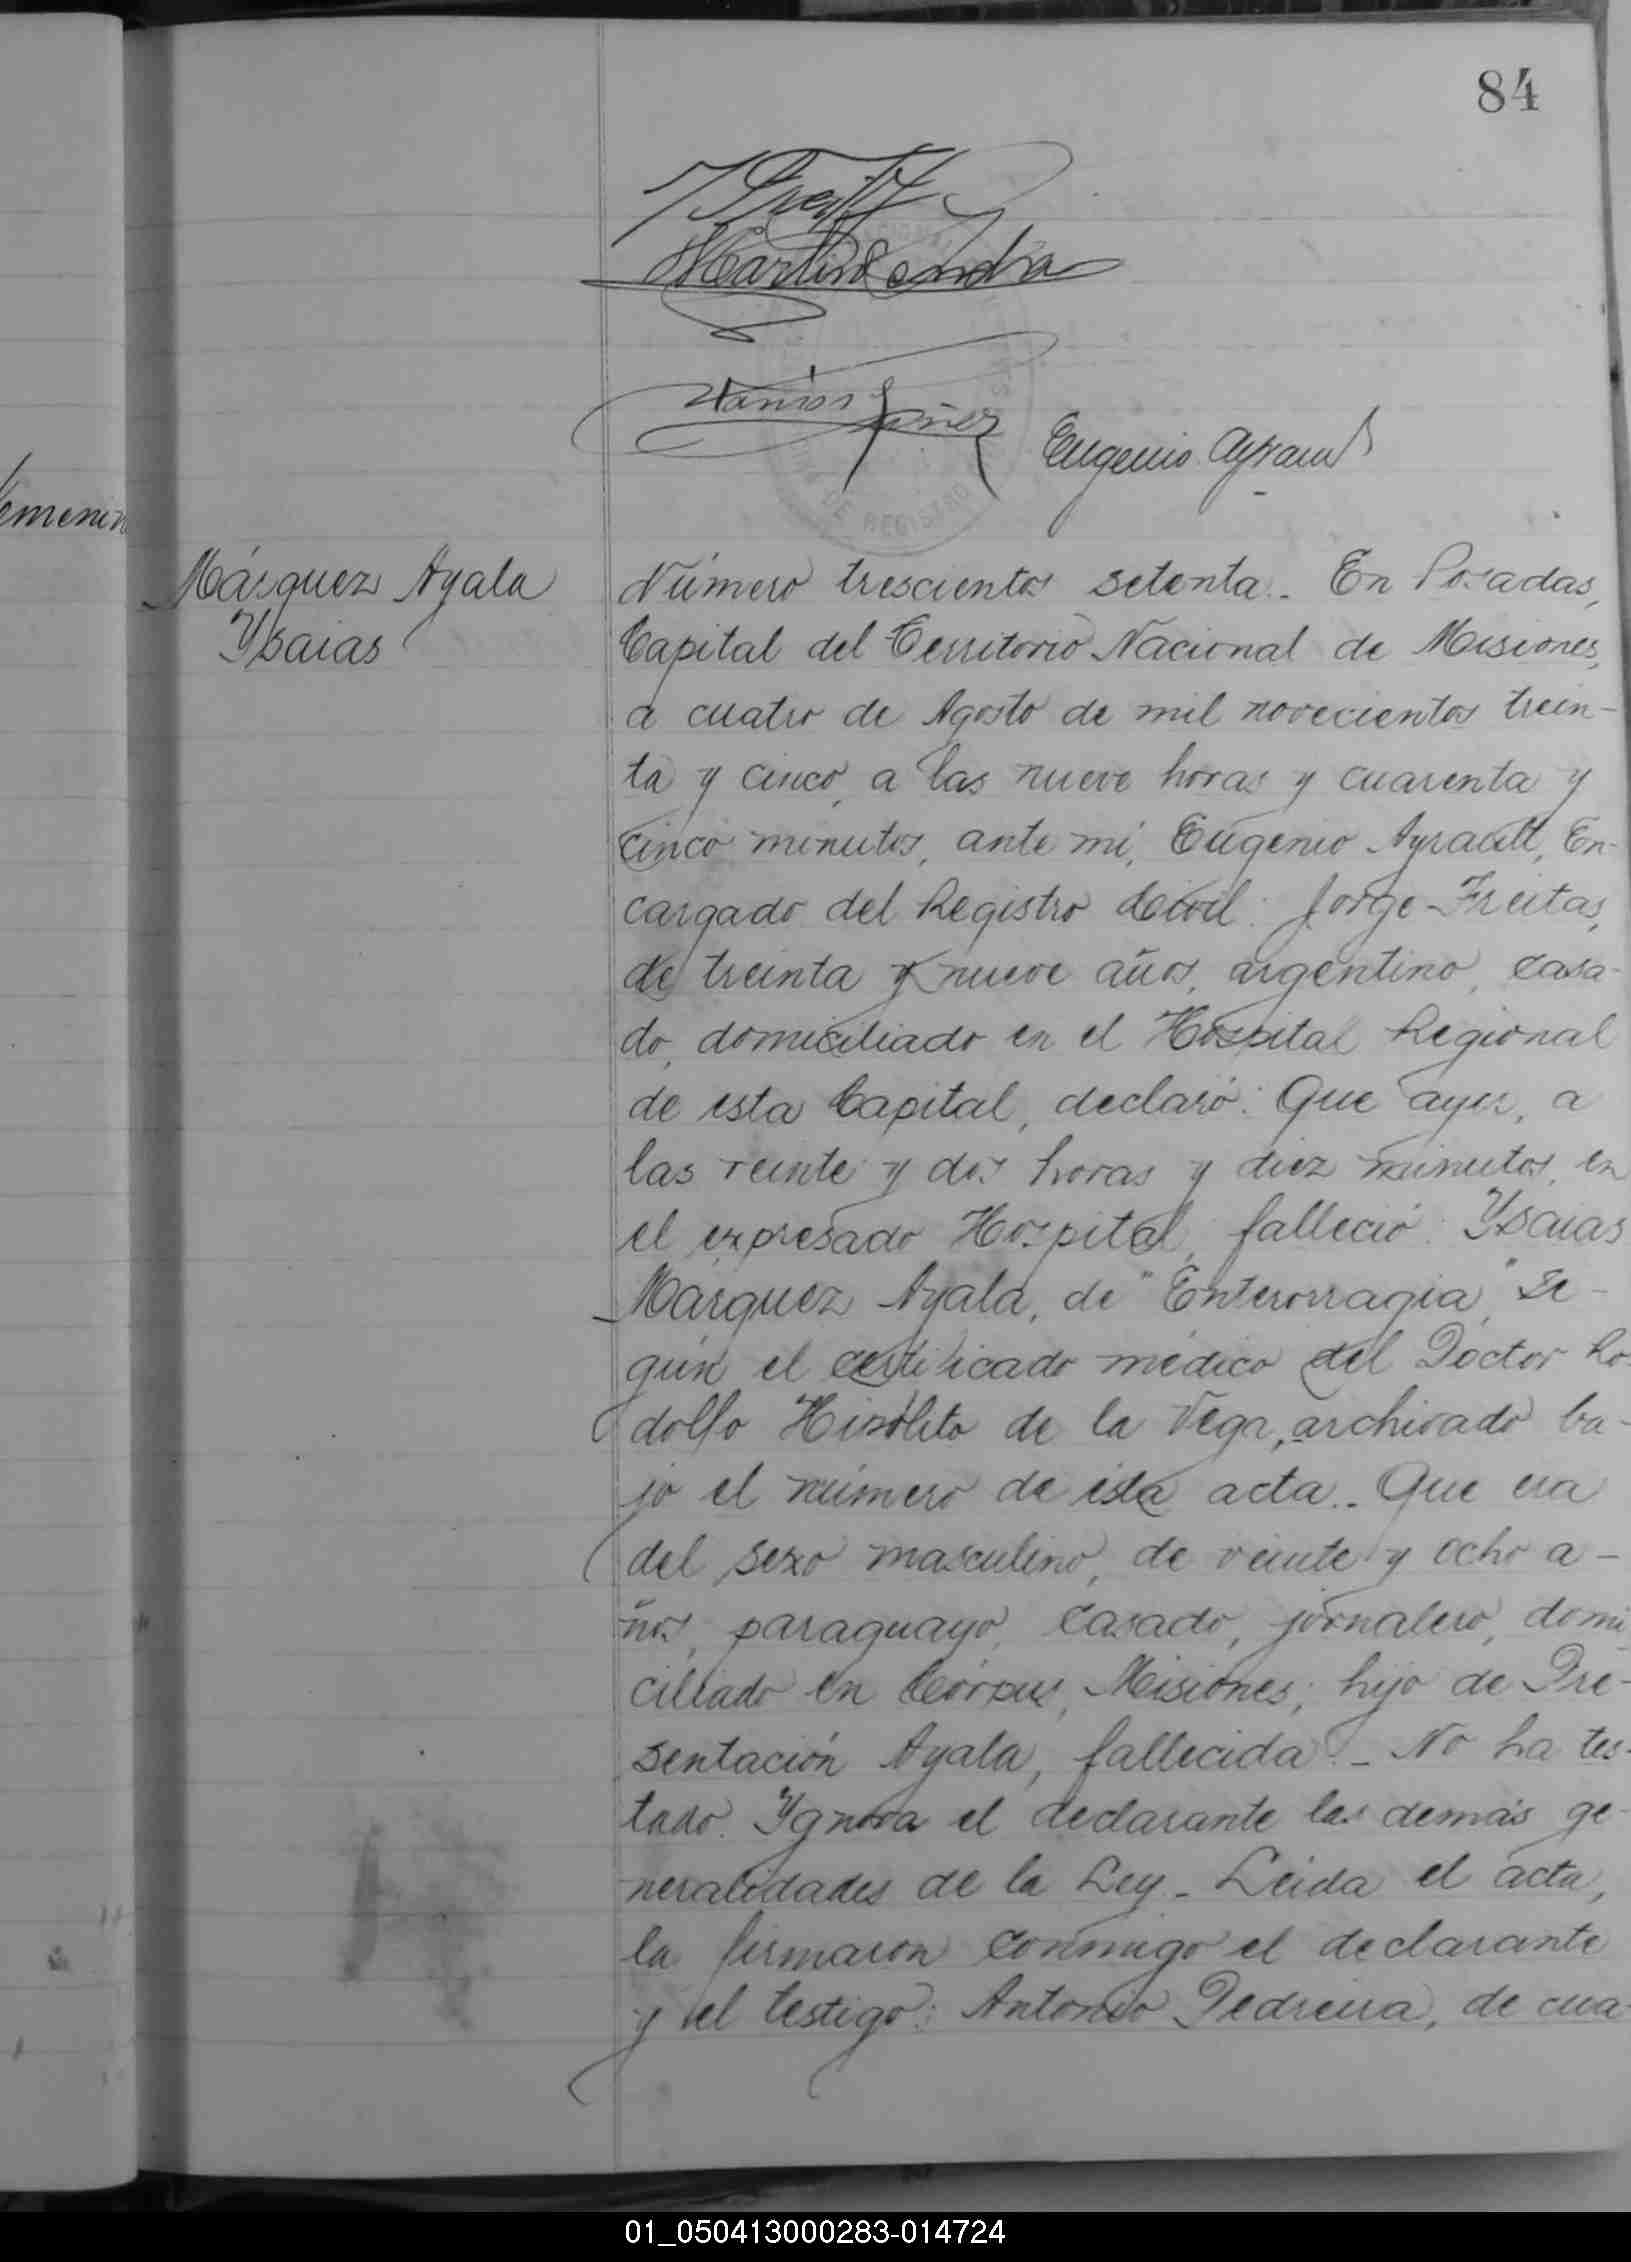 84
Martin
Ramos
Eugenio Ayrault
DE REGISTRO
Márquez Ayala
Ysaias
Número trescientos setenta.. En Posadas,
Capital del Territorio Nacional de Misiones,
a cuatro de Agosto de mil novecientos trein-
ta y cinco, a las nueve horas y cuarenta y
cinco minutos, ante mí, Eugenio Ayrault, En-
cargado del Registro Civil: Jorge Freitas,
de treinta y nueve años, argentino, casa-
do, domiciliado en el Hospital Regional
de esta Capital, declaró: Que ayer, a
las veinte y dos horas y diez minutos, en
el expresado Hospital, falleció: Ysaias
Márquez Ayala, de "Enterorragia", se-
gún el certificado médico del Doctor Ro-
dolfo Hipólito de la Vega, archivado ba-
jo el número de esta acta.. Que era
del sexo masculino, de veinte y ocho a-
ños, paraguayo, casado, jornalero, domi
ciliado en Córpus, Misiones; hijo de Pre-
sentación Ayala, fallecida.- No ha tes-
tado. Ygnora el declarante las demás ge-
neralidades de la Ley.- Leída el acta,
la firmaron conmigo el declarante
y el testigo: Antonio Pedreira, de cua-
01_050413000283-014724